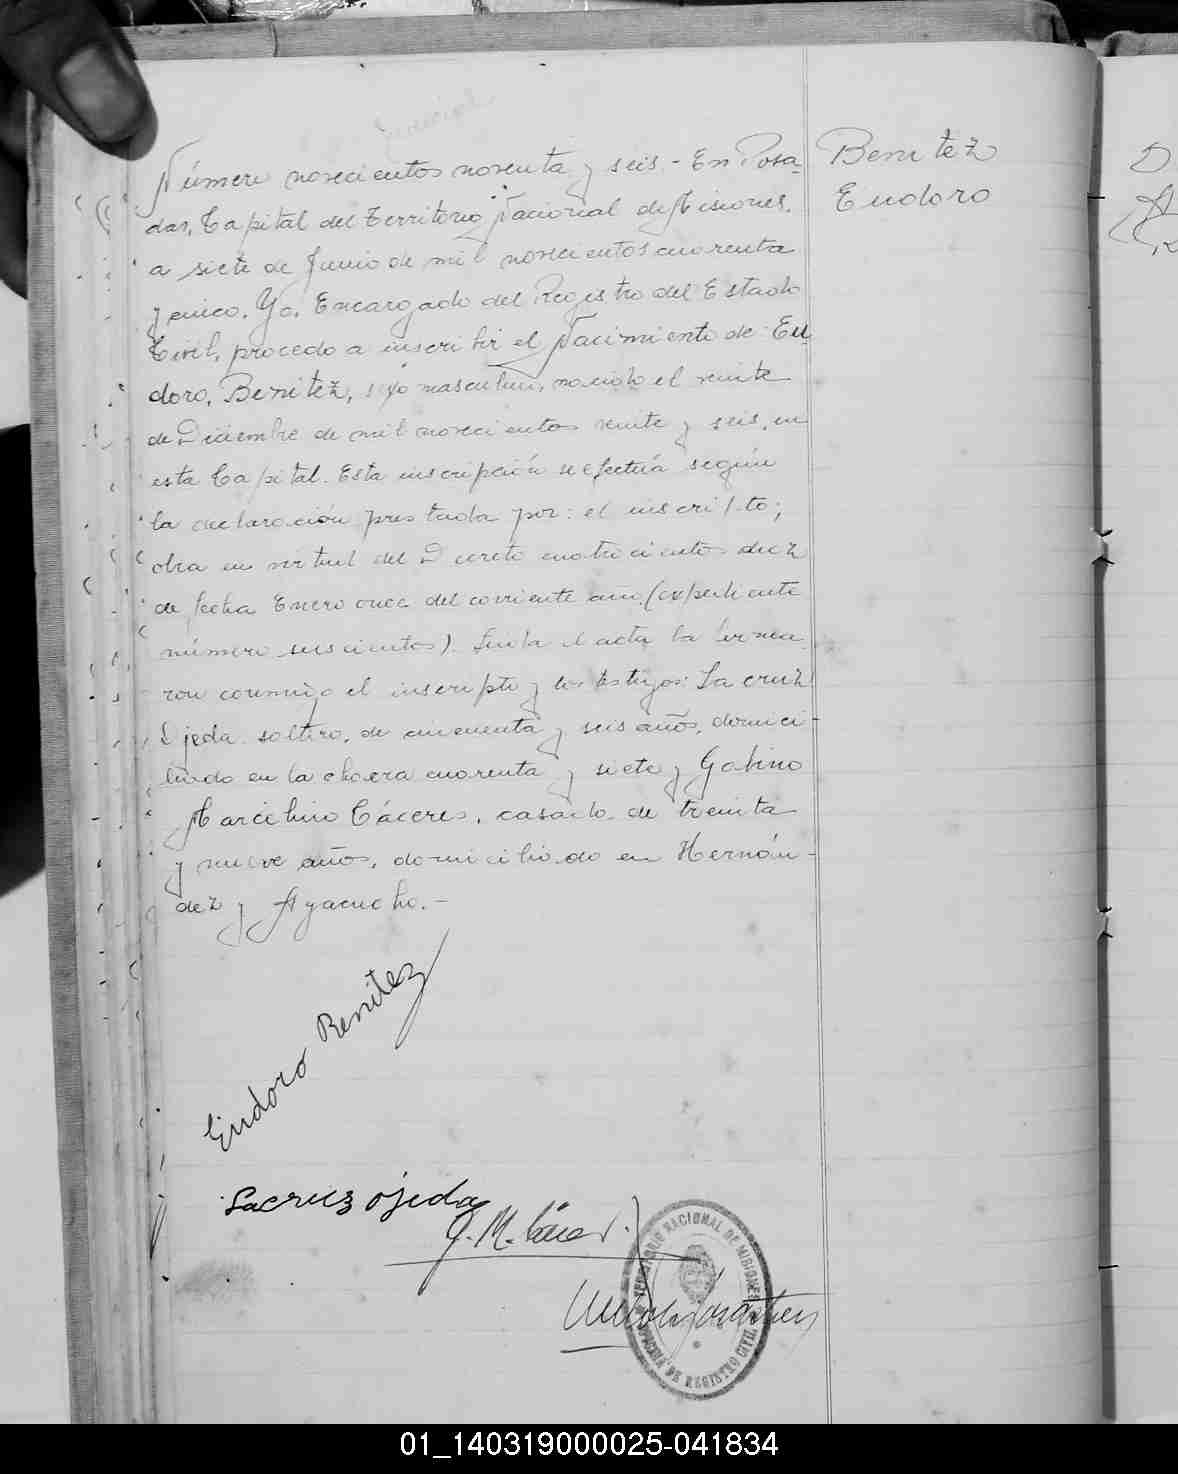 Judicial
Número novecientos noventa y seis.- En Posa-
das, Capital del Territorio Nacional de Misiones,
a siete de Junio de mil novecientos cuarenta
y cinco. Yo, Encargado del Registro del Estado
Civil, procedo a inscribir el Nacimiento de: Eu
doro, Benitez, sexo masculino, nacido el veinte
de Diciembre de mil novecientos veinte y seis, en
esta Capital. Esta inscripción se efectúa según
la declaración prestada por: el inscripto;
obra en virtud del Decreto cuatrocientos diez
de fecha Enero once del corriente año (expediente
número seiscientos). Leida el acta la firma
ron conmigo el inscripto y los testigos: La cruz
Ojeda soltero, de cincuenta y seis años, domici-
liado en la chacra cuarenta y siete y Gabino
Marcelino Cáceres, casado, de treinta
y nueve años, domiciliado en Hernán-
dez y Ayacucho.-
Benitez
Eudoro
Eudoro Benitez
Lacruz ojeda
G. M. Cáceres
TERRITORIO NACIONAL DE MISIONES
OFICINA DE REGISTRO CIVIL
01_140319000025-041834